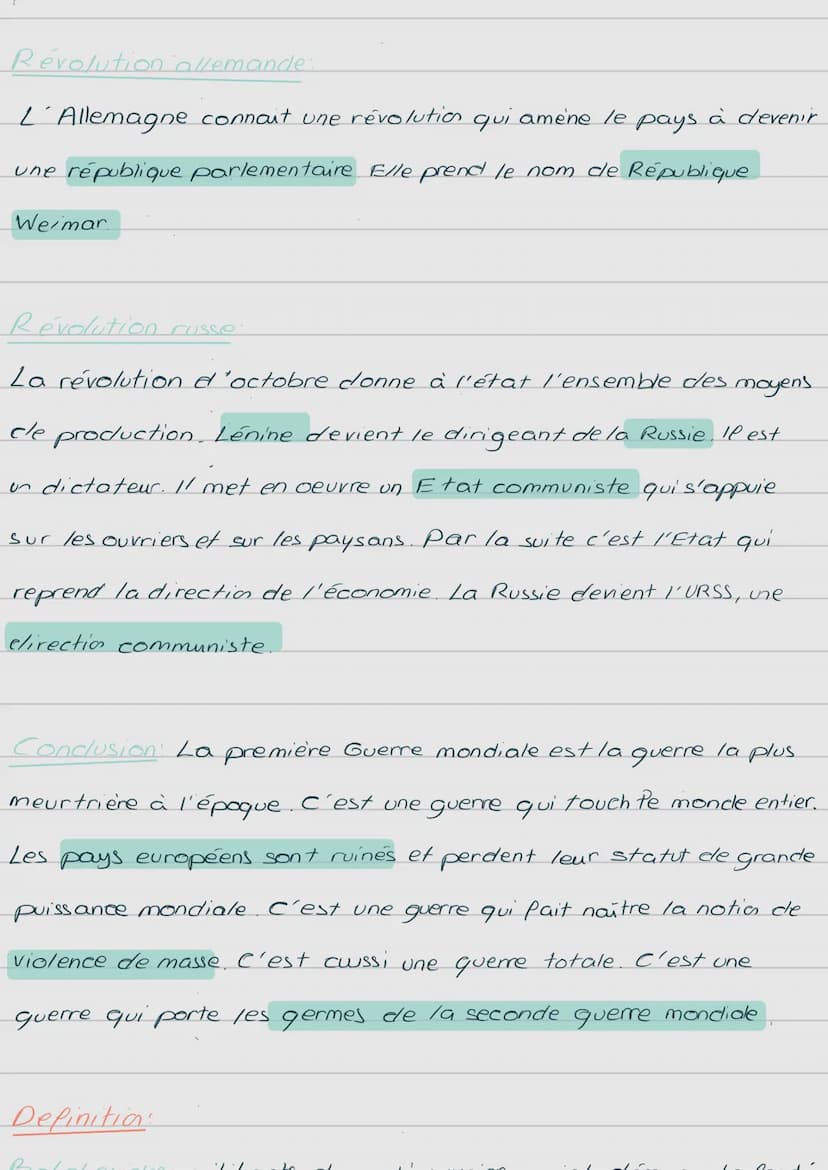 Révolution allemande:
L'Allemagne connait une révolution qui amène le pays à devenir
une république parlementaire Elle prend le nom de République
Weimar.
Révolution russe:
La révolution d'octobre donne à l'état l'ensemble des moyens
de production. Lénine devient le dirigeant de la Russie. Il est
un dictateur. Il met en oeuvre un Etat communiste qui s'appuie
sur les ouvriers et sur les paysans. Par la suite c'est l'Etat qui
reprend la direction de l'économie. La Russie devient l'URSS, une
direction communiste.
Conclusion: La première Guerre mondiale est la guerre la plus
meurtrière à l'époque. C'est une guerre qui touch le monde entier.
Les pays européens sont ruinés et perdent leur statut de grande
puissance mondiale. C'est une guerre qui fait naître la notion de
violence de masse. C'est aussi une guerre totale. C'est une
guerre qui porte les germes de la seconde guerre mondiale.
Definition: